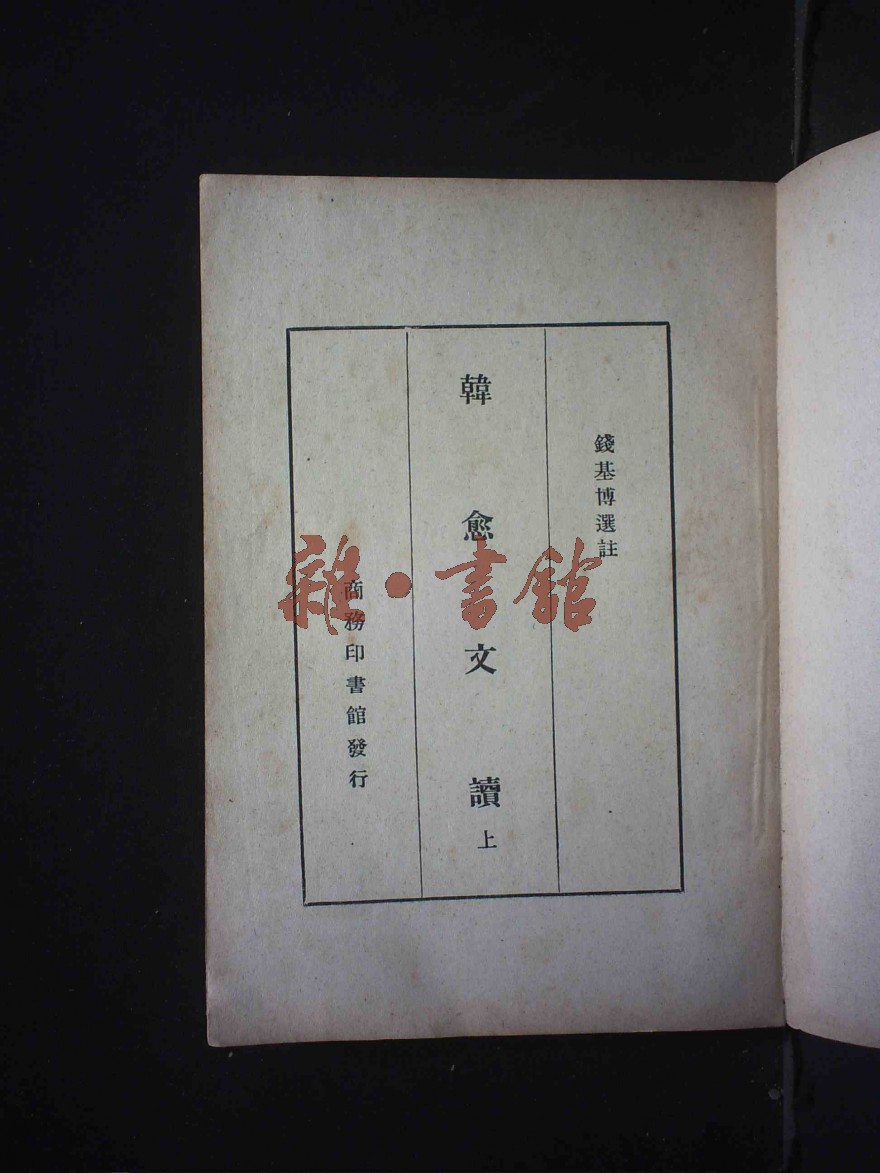 錢基博選註
韓愈文讀 上
商務印書館發行
雜·書館